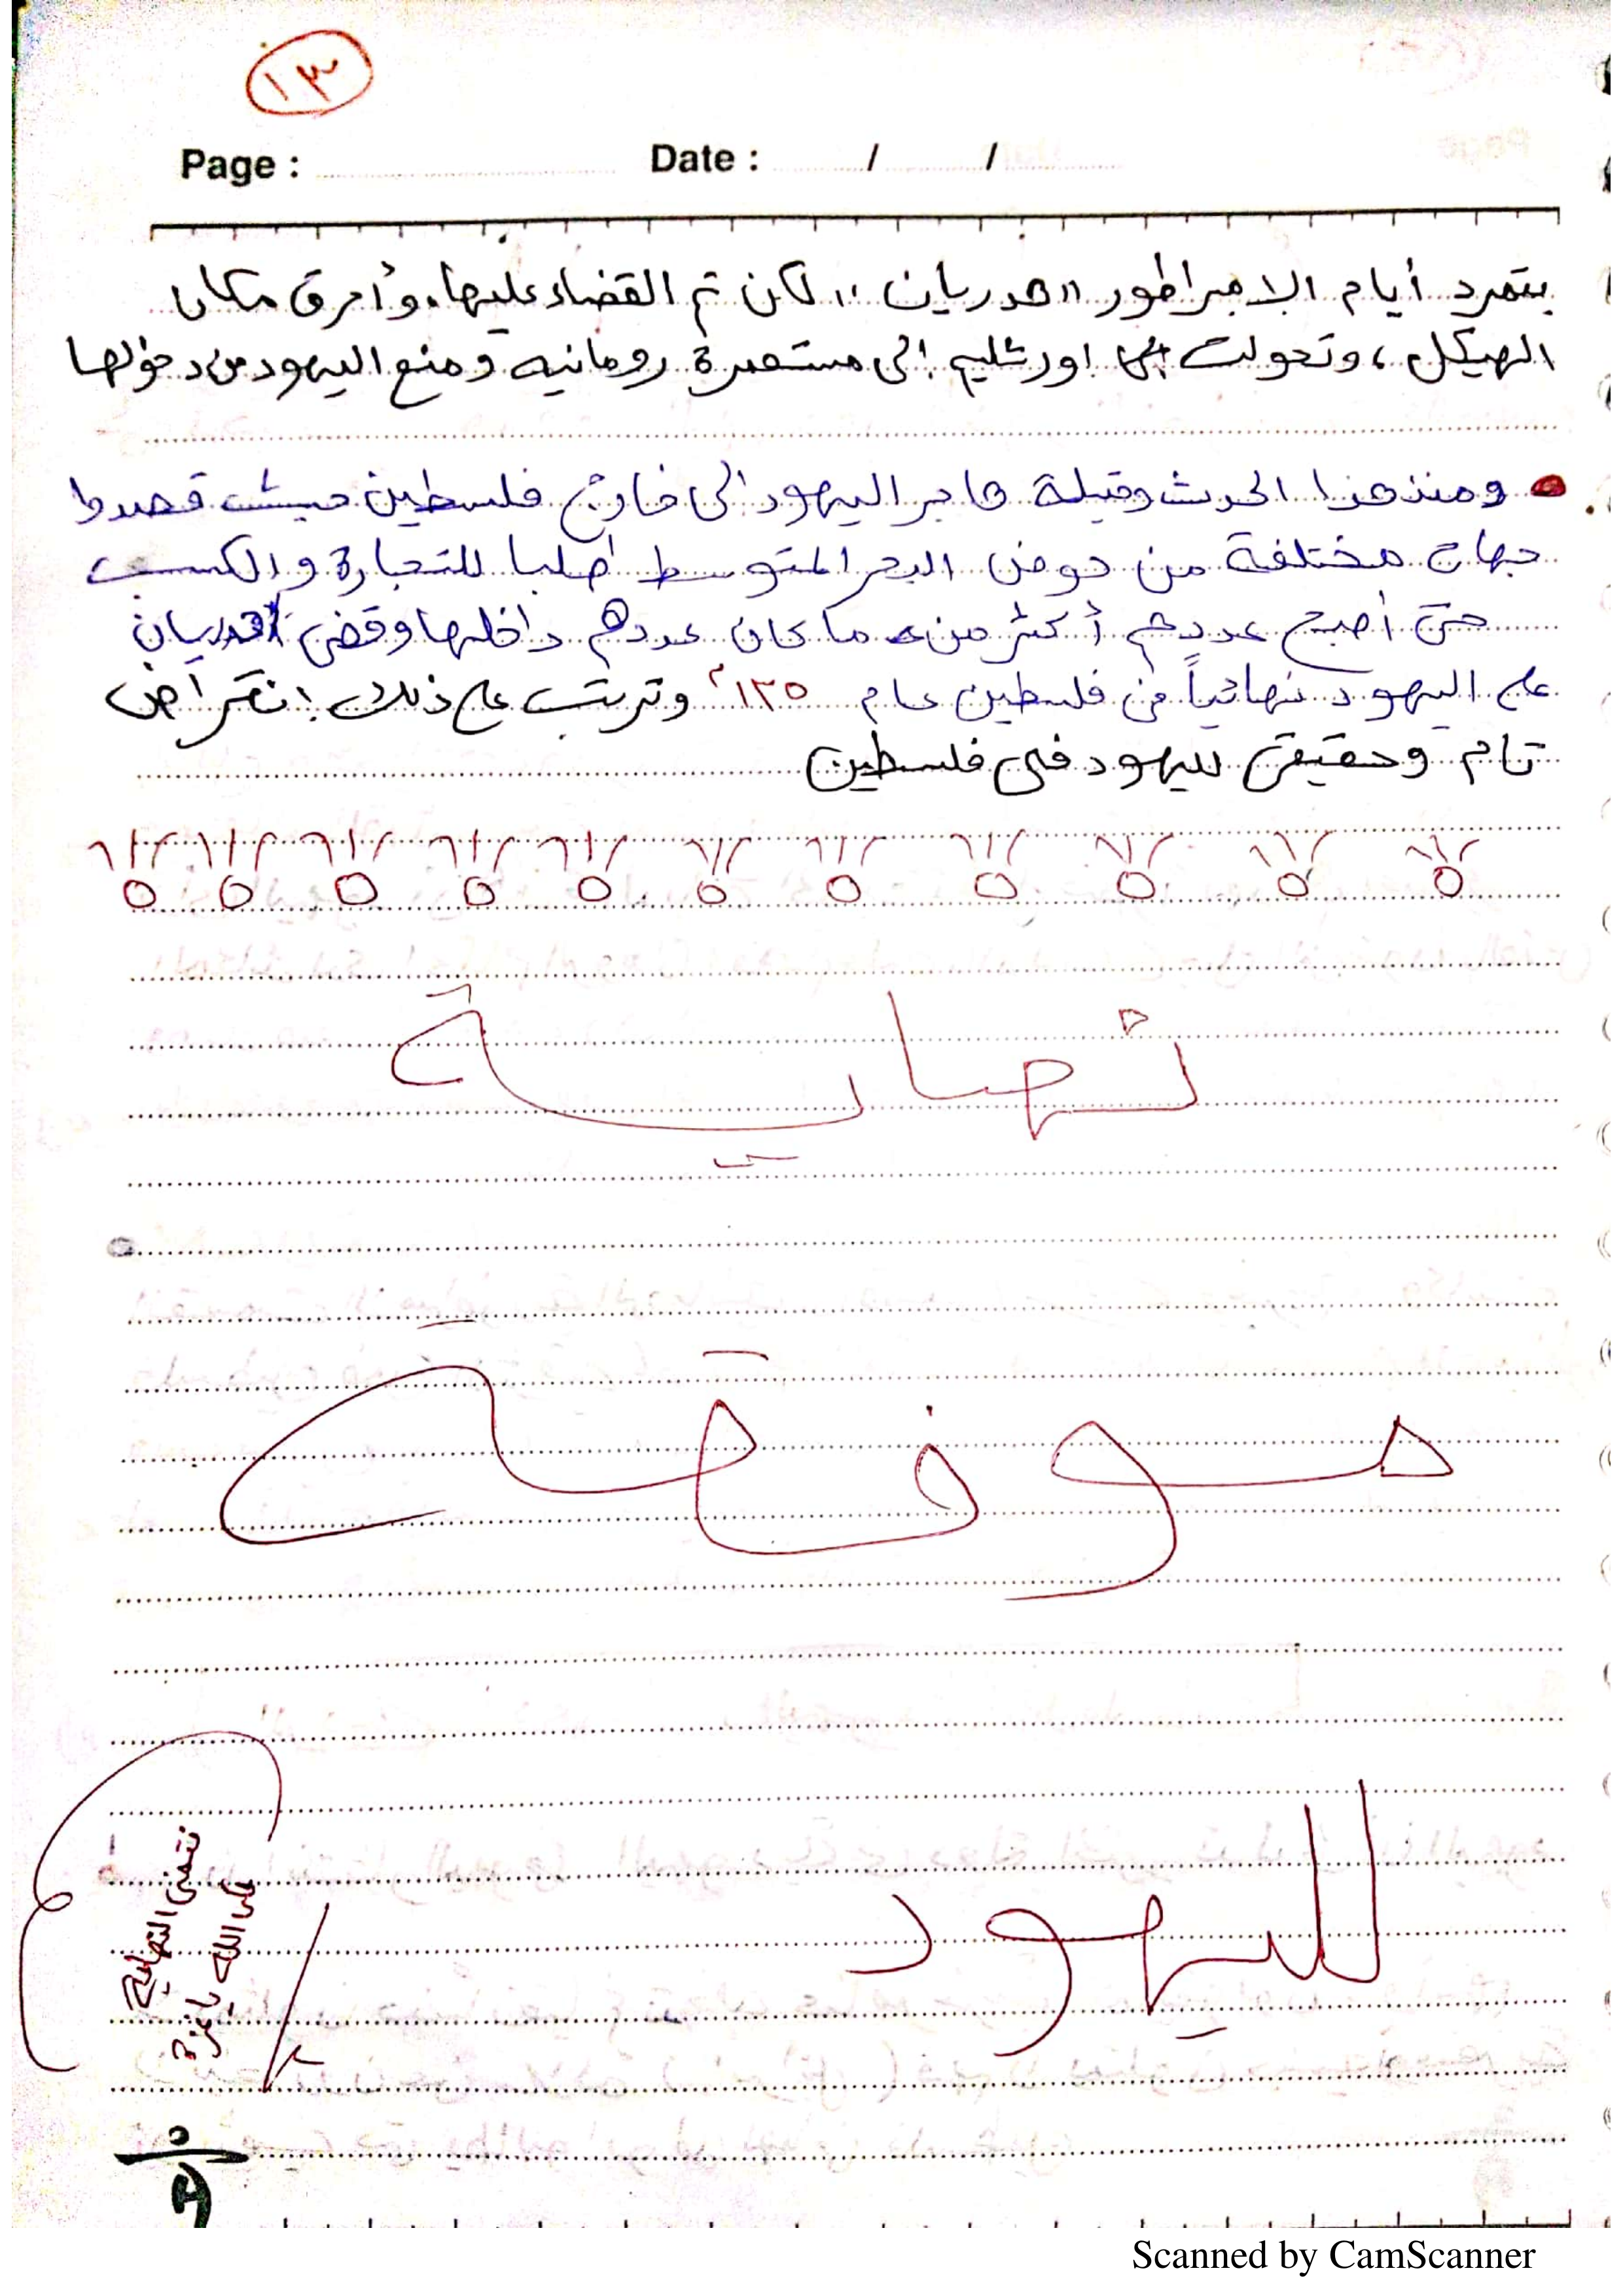 ١٣
Page : Date : / /
بتمرد أيام الامبراطور "هدريان" لكن تم القضاء عليها، وأحرق مكان
الهيكل، وتحولت اورشليم إلى مستعمرة رومانيه ومنع اليهود من دخولها
ومنذ هذا الحدث وقبله هاجر اليهود إلى خارج فلسطين حيث قصدوا
جهات مختلفة من حوض البحر المتوسط طلبا للتجارة والكسب
حتى أصبح عددهم أكثر من ما كان عددهم داخلها وقضى هدريان
على اليهود نهائياً في فلسطين عام ١٣٥م وترتب على ذلك إنقراض
تام وحقيقى لليهود فى فلسطين
نهاية
موفقة
لليهود
نتمنى النهاية
على الله يا غزة
Scanned by CamScanner